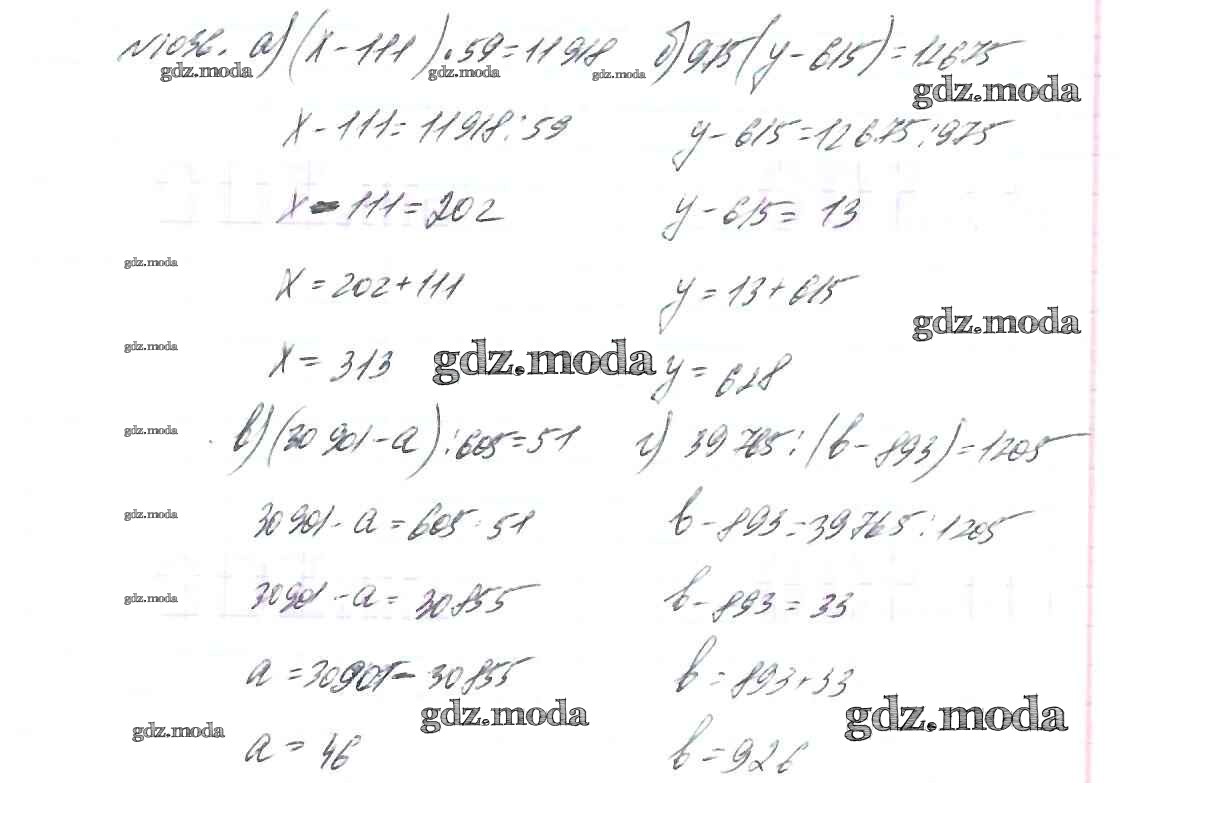 №1036. а) (x-111)·59=11918 б) 975(y-615)=12675
gdz.moda gdz.moda gdz.moda gdz.moda
x-111=11918:59 y-615=12675:975
x-111=202 y-615=13
gdz.moda
x=202+111 y=13+615
gdz.moda
gdz.moda
x=313 gdz.moda y=628
gdz.moda
в) (30901-a):605=51 г) 39765:(b-893)=1205
gdz.moda
30901-a=605·51 b-893=39765:1205
gdz.moda
30901-a=30855 b-893=33
a=30901-30855 b=893+33
gdz.moda gdz.moda gdz.moda
a=46 b=926